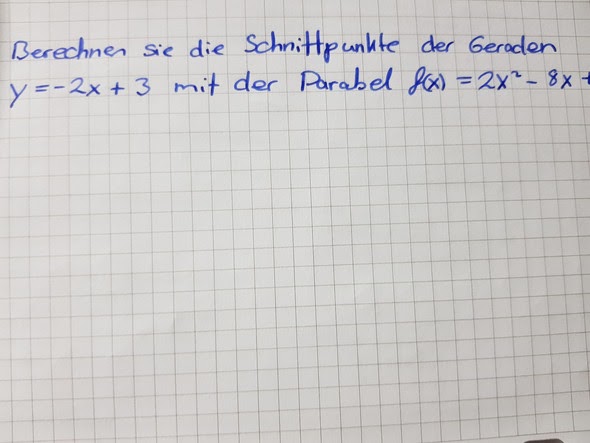 Berechnen sie die Schnittpunkte der Geraden
y = -2x + 3 mit der Parabel f(x) = 2x² - 8x +